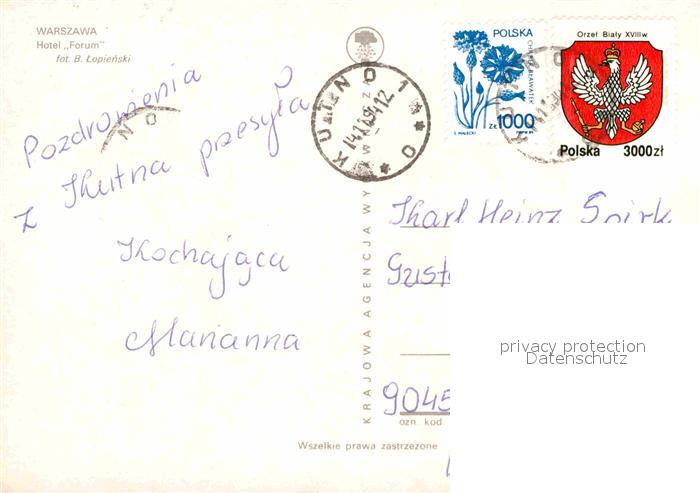 WARSZAWA
Hotel „Forum”
fot. B. Łopieński
Pozdrowienia
z Kutna przesyła
Kochająca
Marianna
KUTNO 1
KRAJOWA AGENCJA WY
POLSKA
CHABER BŁAWATEK
S. MAŁECKI
Zł 1000
Orzeł Biały XVIII w
Polska 3000 zł
Karl Heinz
Gust
9045
ozn kod
Wszelkie prawa zastrzeżone
privacy protection
Datenschutz